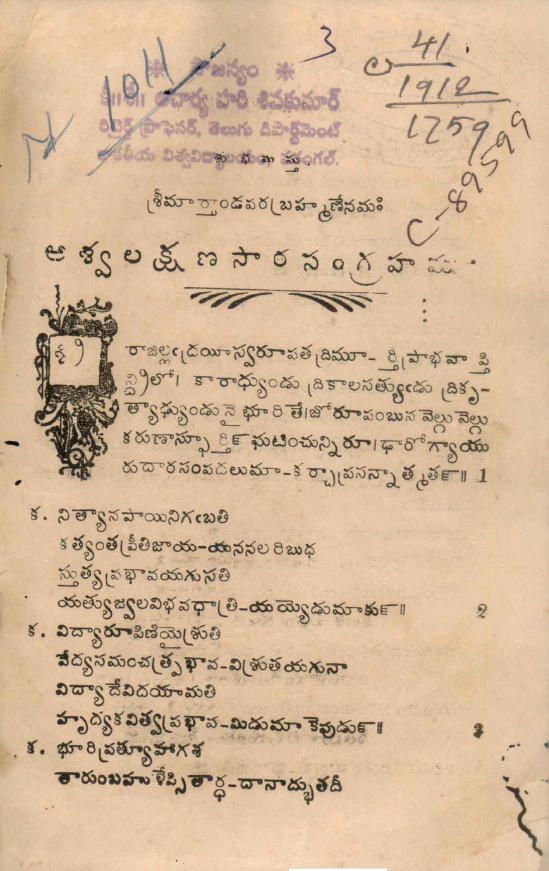 3
41
1911
1912
1259
C-89599
సౌజన్యం
ఆచార్య హరి శివకుమార్
రిటైర్డ్ ప్రొఫెసర్, తెలుగు డిపార్ట్‌మెంట్
కాకతీయ విశ్వవిద్యాలయం, వరంగల్.
శుభమస్తు.
శ్రీమార్తాండపరబ్రహ్మణేనమః
అశ్వలక్షణసారసంగ్రహము.
శ్రీ
రాజిల్లఁద్రయీస్వరూపతద్రిమూ-ర్తిప్రాభవాప్తి
న్ద్రిలో। కారాధ్యుండు ద్రికాలసత్యుఁడు ద్రికృ-
త్యాధ్యుండునై భూరితే।జోరూపంబున వెల్గు వెల్గు
కరుణాస్ఫూర్తిఁ ఘటించున్నిరూ।ఢారోగ్యాయు
రుదారసంపదలుమా-కర్చాప్రసన్నాత్మతఁ॥ 1
క. నిత్యానపాయినిగఁబతి
కత్యంతప్రీతిజాయ-యననలరిబుధ
స్తుత్యప్రభావయగుసతి
యత్యుజ్వలవిభవధాత్రి-యయ్యెడుమాకుఁ॥ 2
క. విద్యారూపిణియైశ్రుతి
వేద్యసమంచత్ప్రభావ-విశ్రుతయగునా
విద్యాదేవిదయామతి
హృద్యకవిత్వప్రభావ-మిడుమాకెపుడుఁ॥ 3
క. భూరిప్రత్యూహాగశ
తారుంబహుళేప్సితార్ధ-దానాద్భుతదీ